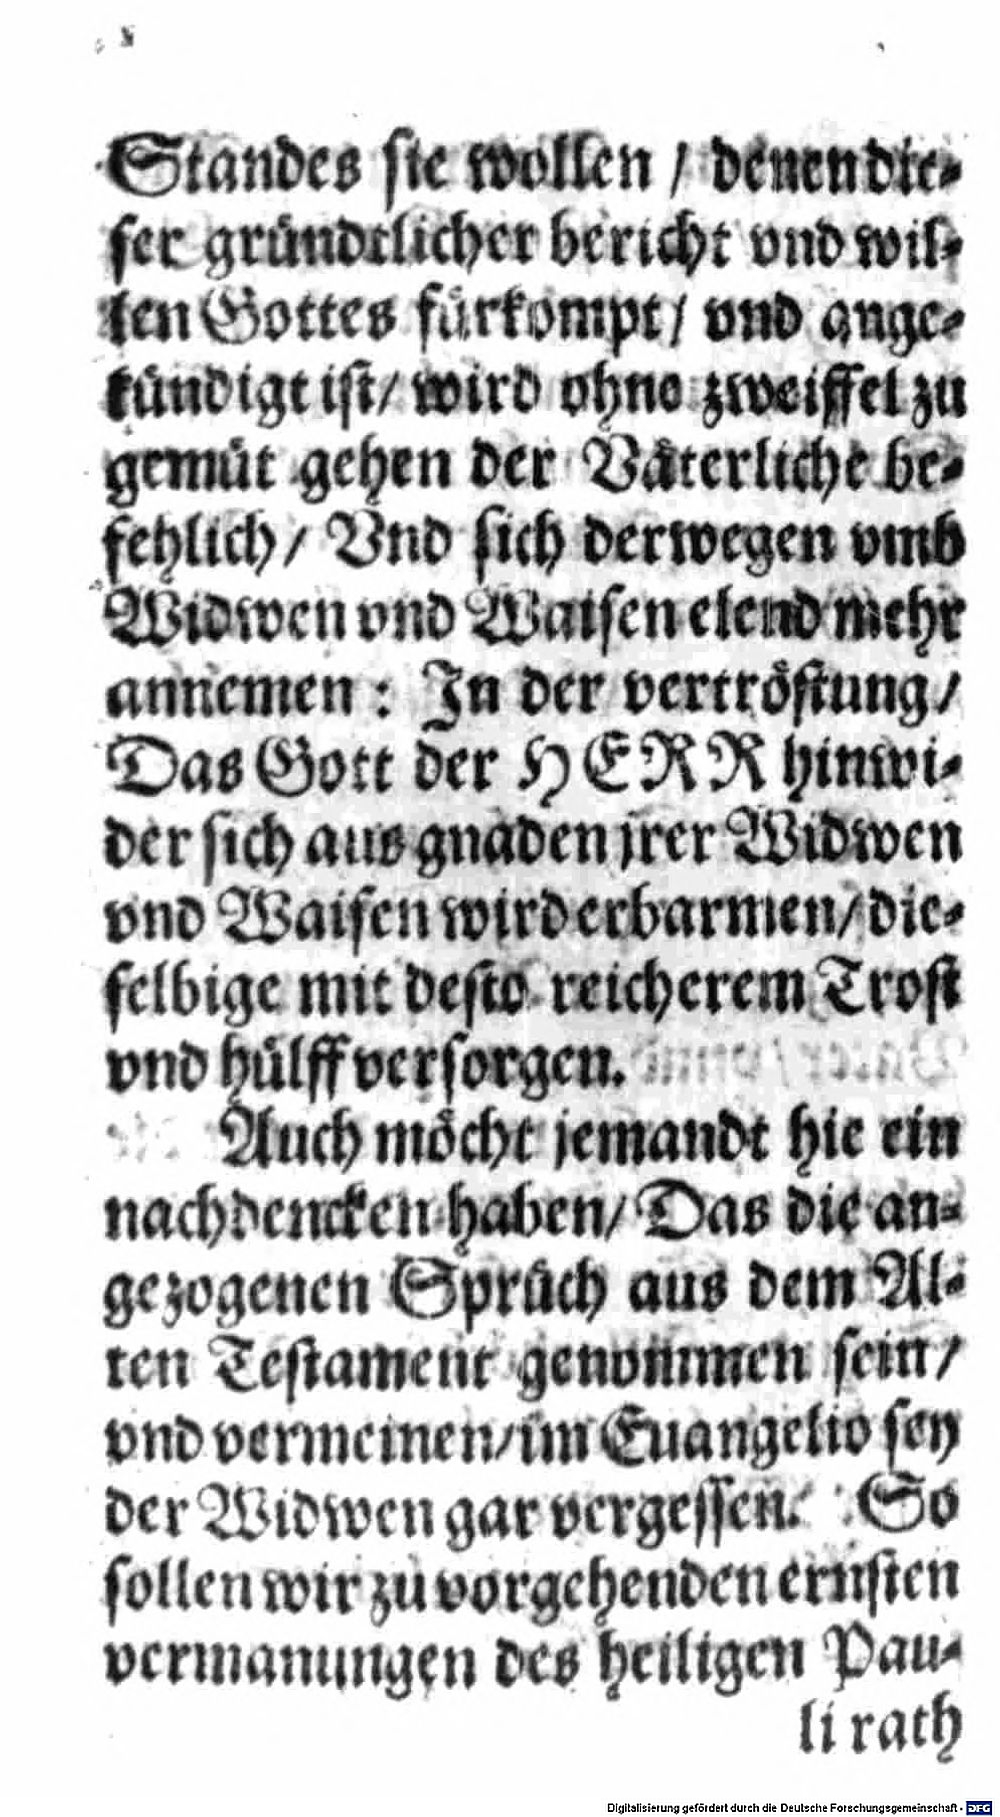 Standes sie wollen / denen die⸗
ser gründtlicher bericht vnd wil⸗
len Gottes fürkompt / vnd ange⸗
kündigt ist / wird ohne zweiffel zu
gemüt gehen der Väterliche be⸗
fehlich / Vnd sich derwegen vmb
Widwen vnd Waisen elend mehr
annemen : In der vertröstung /
Das Gott der HERR hinwi⸗
der sich aus gnaden jrer Widwen
vnd Waisen wird erbarmen / die⸗
selbige mit desto reicherem Trost
vnd hülff versorgen.
Auch möcht jemandt hie ein
nachdencken haben / Das die an⸗
gezogenen Sprüch aus dem Al⸗
ten Testament genommen sein /
vnd vermeinen / im Euangelio sey
der Widwen gar vergessen. So
sollen wir zu vorgehenden ernsten
vermanungen des heiligen Pau⸗
li rath
Digitalisierung gefördert durch die Deutsche Forschungsgemeinschaft - DFG